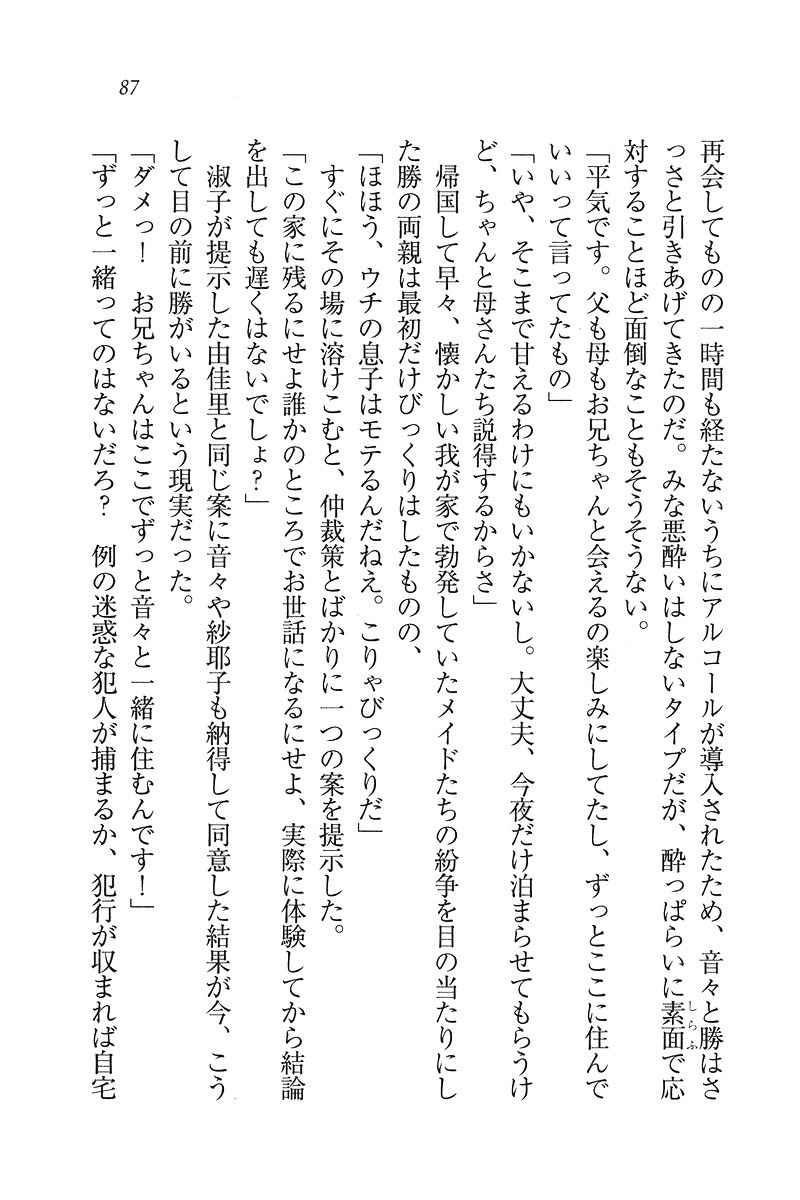 87
再会してものの一時間も経たないうちにアルコールが導入されたため、音々と勝はさ
っさと引きあげてきたのだ。みな悪酔いはしないタイプだが、酔っぱらいに素面で応
しらふ
対することほど面倒なこともそうそうない。
「平気です。父も母もお兄ちゃんと会えるの楽しみにしてたし、ずっとここに住んで
いいって言ってたもの」
「いや、そこまで甘えるわけにもいかないし。大丈夫、今夜だけ泊まらせてもらうけ
ど、ちゃんと母さんたち説得するからさ」
　帰国して早々、懐かしい我が家で勃発していたメイドたちの紛争を目の当たりにし
た勝の両親は最初だけびっくりはしたものの、
「ほほう、ウチの息子はモテるんだねえ。こりゃびっくりだ」
　すぐにその場に溶けこむと、仲裁策とばかりに一つの案を提示した。
「この家に残るにせよ誰かのところでお世話になるにせよ、実際に体験してから結論
を出しても遅くはないでしょ？」
　淑子が提示した由佳里と同じ案に音々や紗耶子も納得して同意した結果が今、こう
して目の前に勝がいるという現実だった。
「ダメっ！　お兄ちゃんはここでずっと音々と一緒に住むんです！」
「ずっと一緒ってのはないだろ？　例の迷惑な犯人が捕まるか、犯行が収まれば自宅